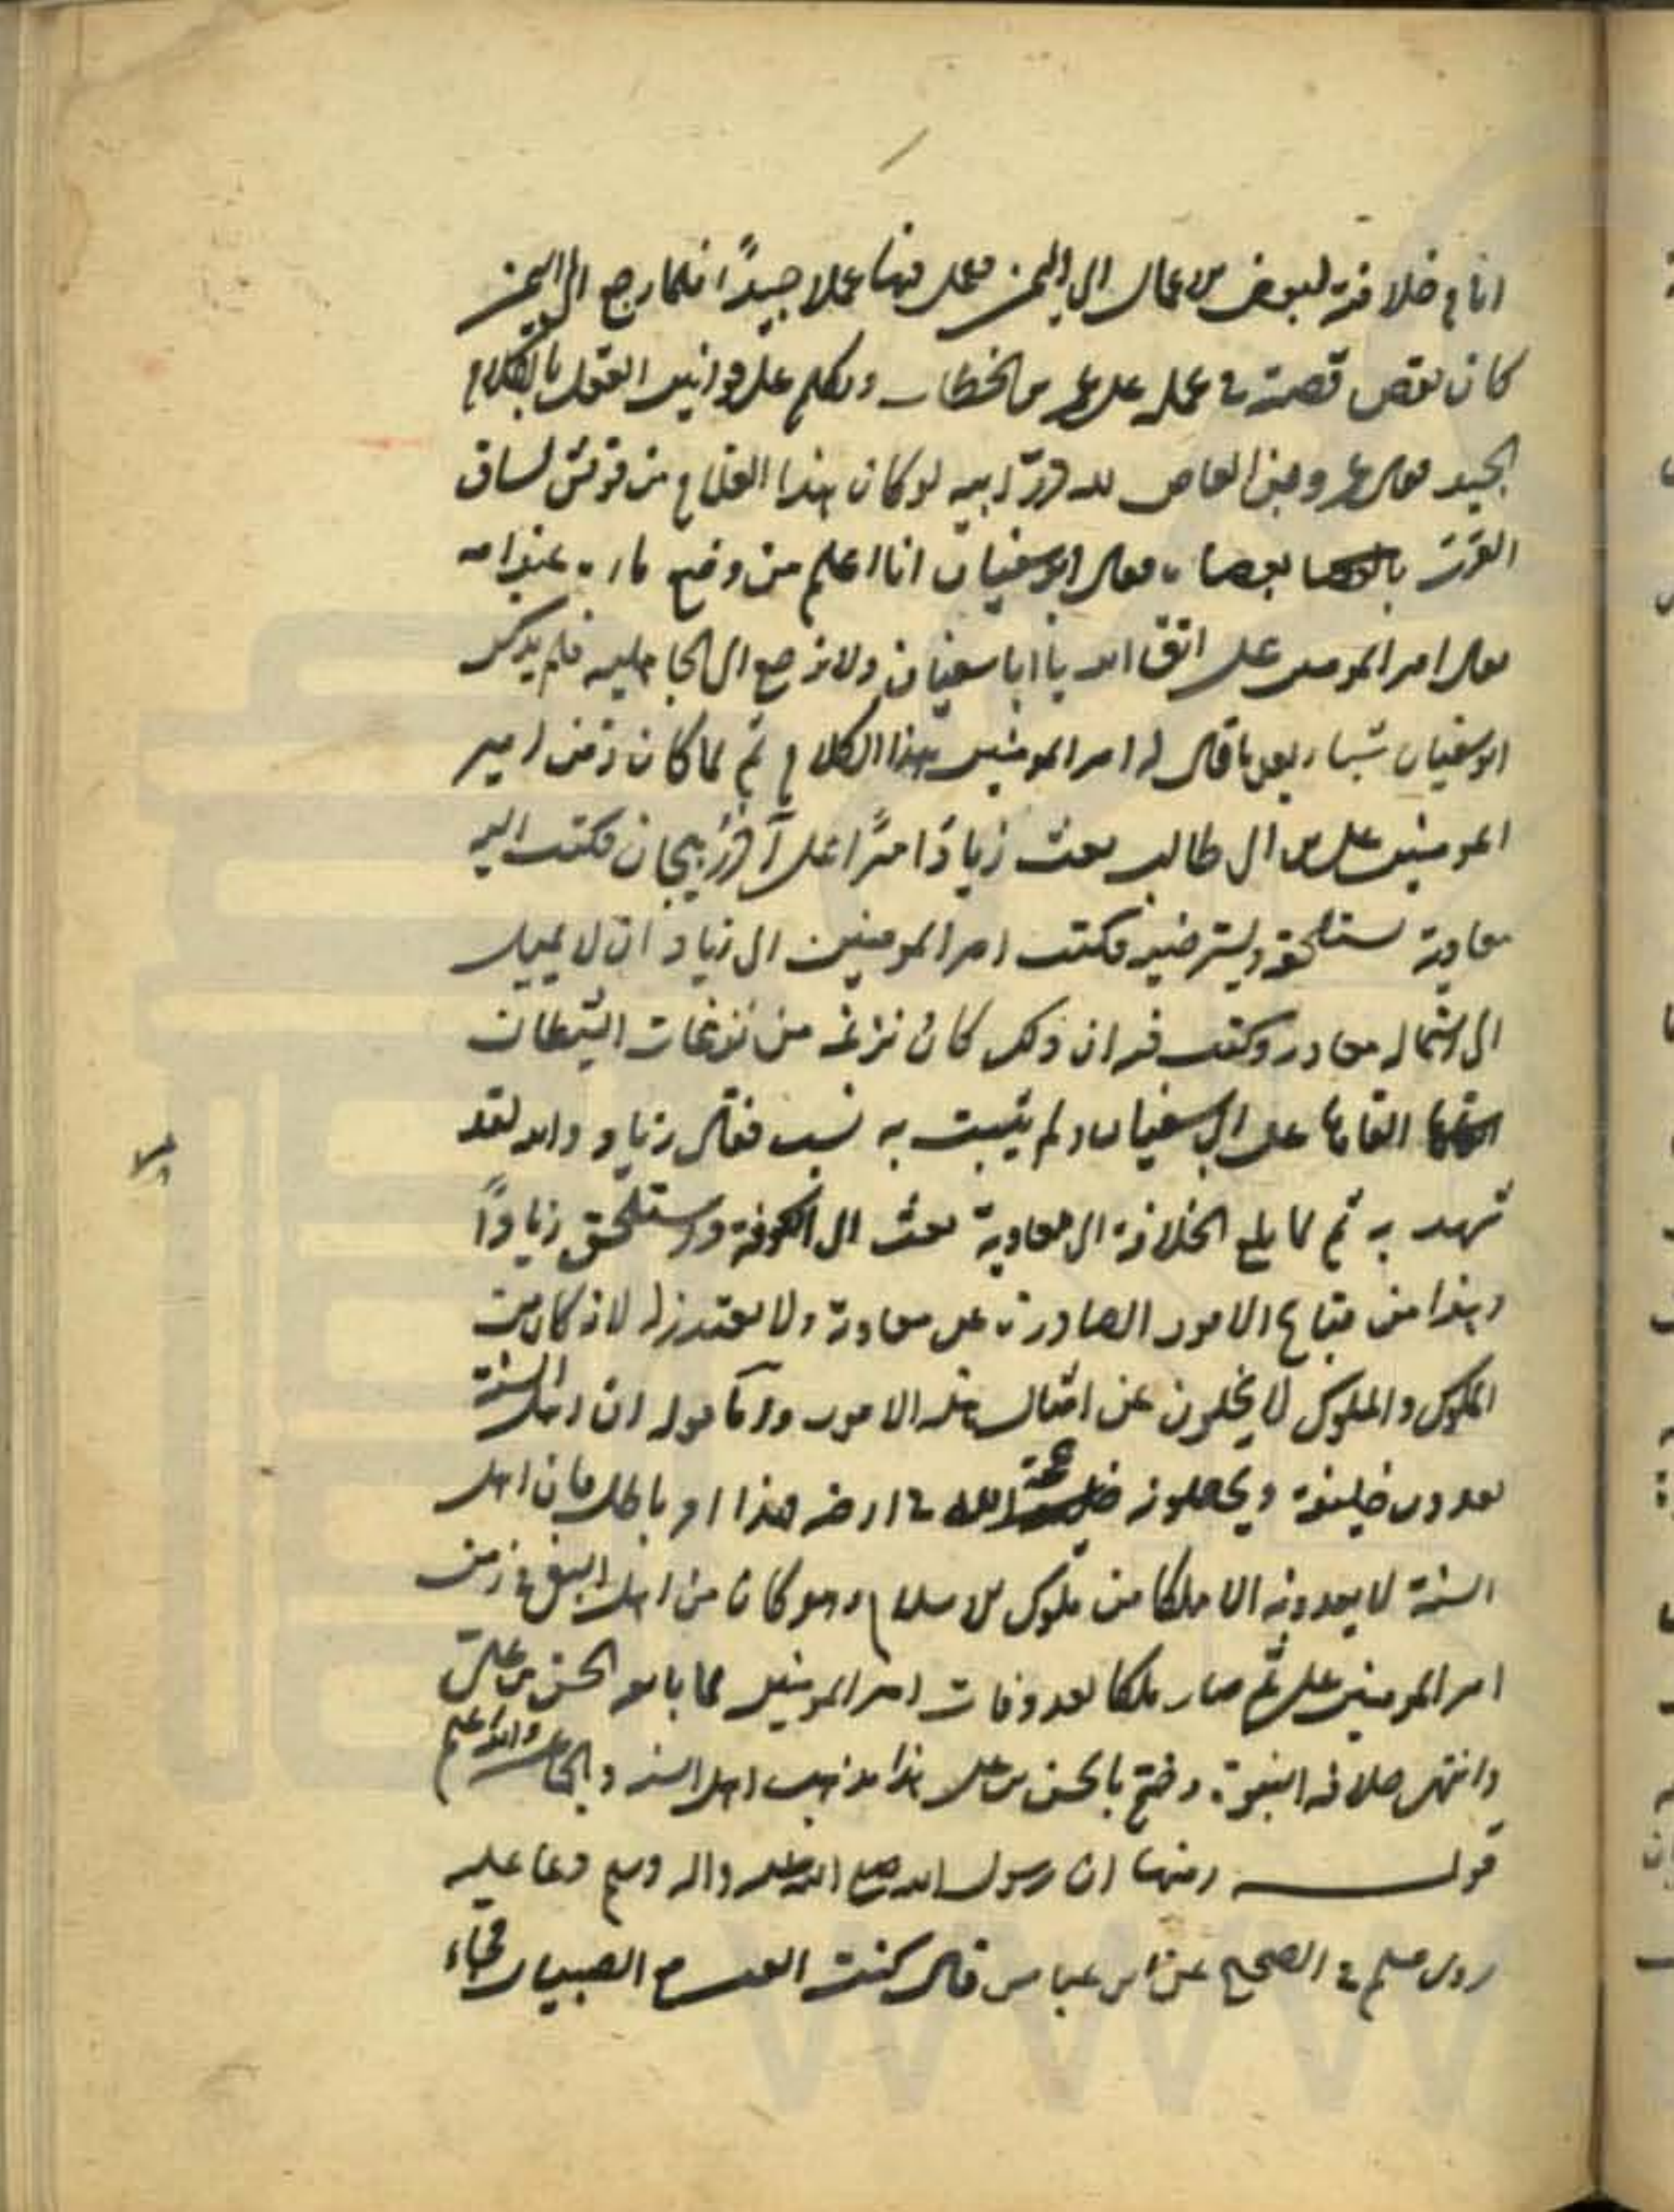 انا في خلافته لبعض الاعمال الى اليمن فعمل فيها عملا جيدًا فلما رجع الى اليمن
كان يقص قصته في عمله على عمر بن الخطاب ويكلم على قوانين العقل بالكلام
الجيد فقال عمرو بن العاص لله درّ ابيه لو كان هذا الغلام من قريش لساق
العرب بعصاه فقال ابو سفيان انا اعلم من وضع ماءه عند امه
فقال امير المومنين علي اتق الله يا ابا سفيان ولا ترجع الى الجاهلية فلم يذكر
ابو سفيان شيئا بعد ما قال له امير المومنين هذا الكلام ثم لما كان زمن امير
المومنين علي بن ابي طالب بعث زيادًا اميرًا على آذربيجان فكتب اليه
معاوية يستلحقه ويسترضيه فكتب امير المومنين الى زياد ان لا يميل
الى معاوية وكتب فيه ان ذلك كان نزغة من نزغات الشيطان
القاها على ابي سفيان ولم يثبت به نسب فقال زياد والله لقد
شهد به ثم لما بلغ الخلافة الى معاوية بعث الى الكوفة واستلحق زيادًا
وهذا من قبايح الامور الصادرة عن معاوية ولا يعتذر له لانه كان من
الملوك والملوك لا يخلون عن امثال هذه الامور واما قوله ان اهل السنة
يعدون خليفة ويجعلونه خليفة الله في ارضه هذا امر باطل فان اهل
السنة لا يعدونه الا ملكا من ملوك الاسلام وهو كان من اهل البغي في زمن
امير المومنين علي ثم صار ملكا بعد وفات امير المومنين لما بايعه الحسن بن علي
وانتهى خلافة النبوة وختم بالحسن بن علي هذا مذهب اهل السنة والجماعة والله اعلم
قوله ومنها ان رسول الله صلى الله عليه واله وسلم دعا عليه
روى مسلم في الصحيح عن ابن عباس قال كنت العب مع الصبيان فجاء